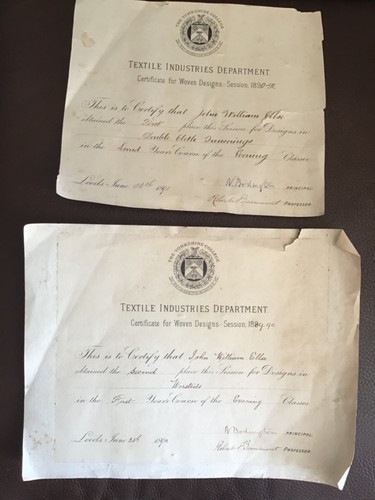 THE YORKSHIRE COLLEGE
TEXTILE INDUSTRIES DEPARTMENT.
Certificate for Woven Designs-Session, 1890-91.
This is to Certify that John William Ellis
obtained the First place this Session for Designs in
Double Cloth Trouserings
in the Second Year's Course of the Evening Classes
Leeds June 24th 1891
N. Bodington PRINCIPAL
Roberts Beaumont PROFESSOR
THE YORKSHIRE COLLEGE
TEXTILE INDUSTRIES DEPARTMENT.
Certificate for Woven Designs-Session, 1889-90
This is to Certify that John William Ellis
obtained the second place this Session for Designs in
Worsteds
in the First Year's Course of the Evening Classes
Leeds June 1890
N. Bodington PRINCIPAL
Roberts Beaumont PROFESSOR